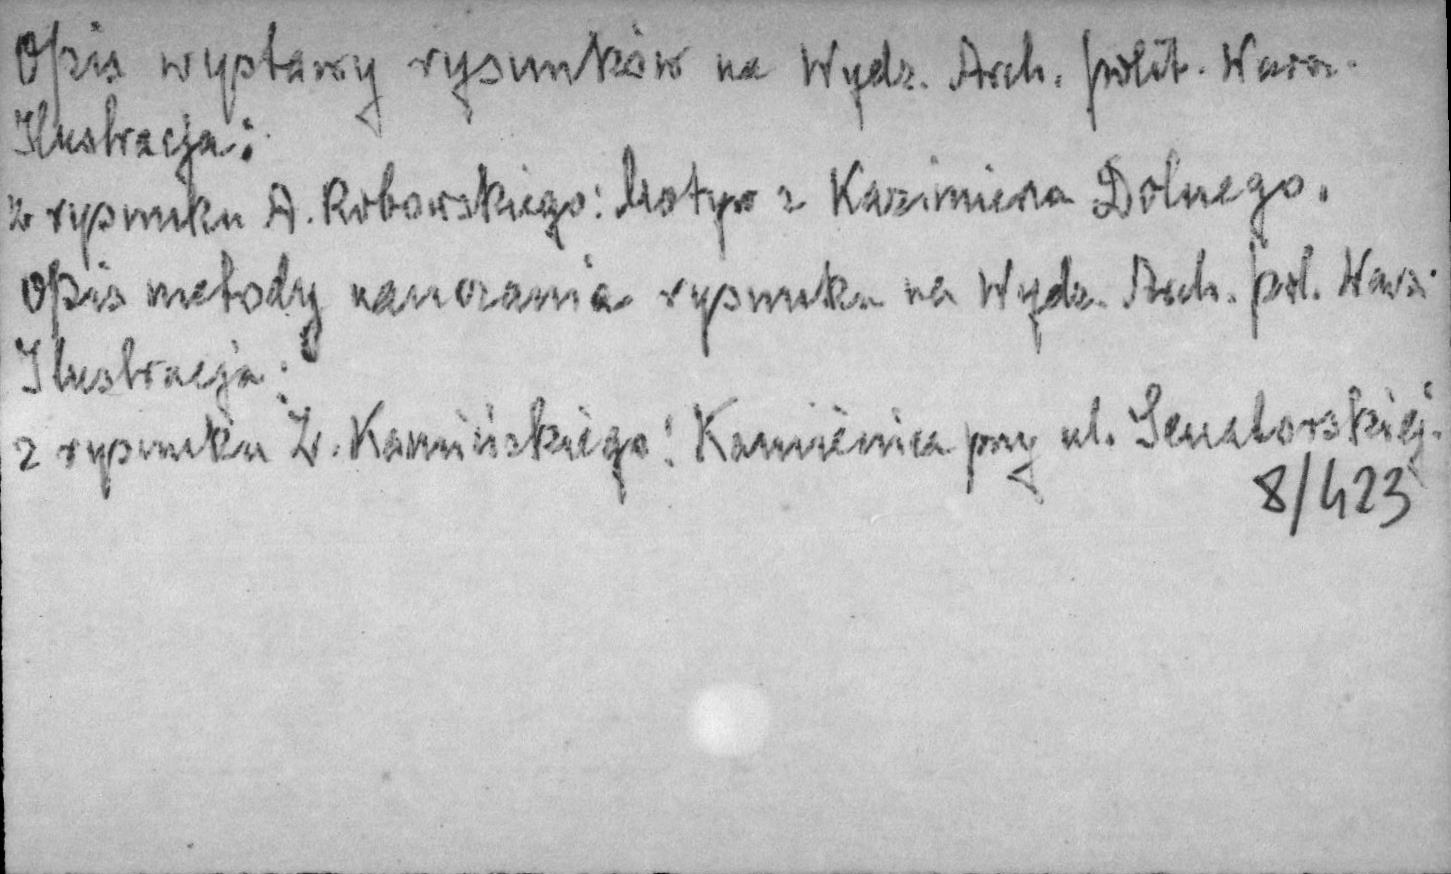 Opis wystawy rysunków na Wydz. Arch. polit. Warsz.
Ilustracja:
z rysunku A. Roborskiego: Motyw z Kazimierza Dolnego.
Opis metody nauczania rysunku na Wydz. Arch. pol. Warsz.
Ilustracja:
z rysunku Z. Kamińskiego: Kamienica przy ul. Senatorskiej.
8/423